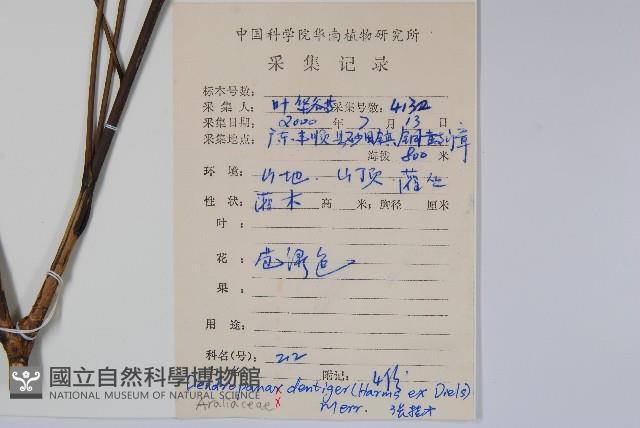 中国科学院华南植物研究所
采集记录
标本号数:
采集人: 叶华谷 采集号数: 4132
采集日期: 2000 年 7 月 13 日
采集地点: 广东丰顺县砂田镇铜鼓嶂
海拔 800 米
环境: 山地.山顶灌丛
性状: 灌木 高 米; 胸径 厘米
叶:
花: 黄绿色
果:
用途:
科名(号): 212
附记: 4份
Dendropanax dentiger (Harms ex Diels)
Merr.
Araliaceae x
國立自然科學博物館
NATIONAL MUSEUM OF NATURAL SCIENCE